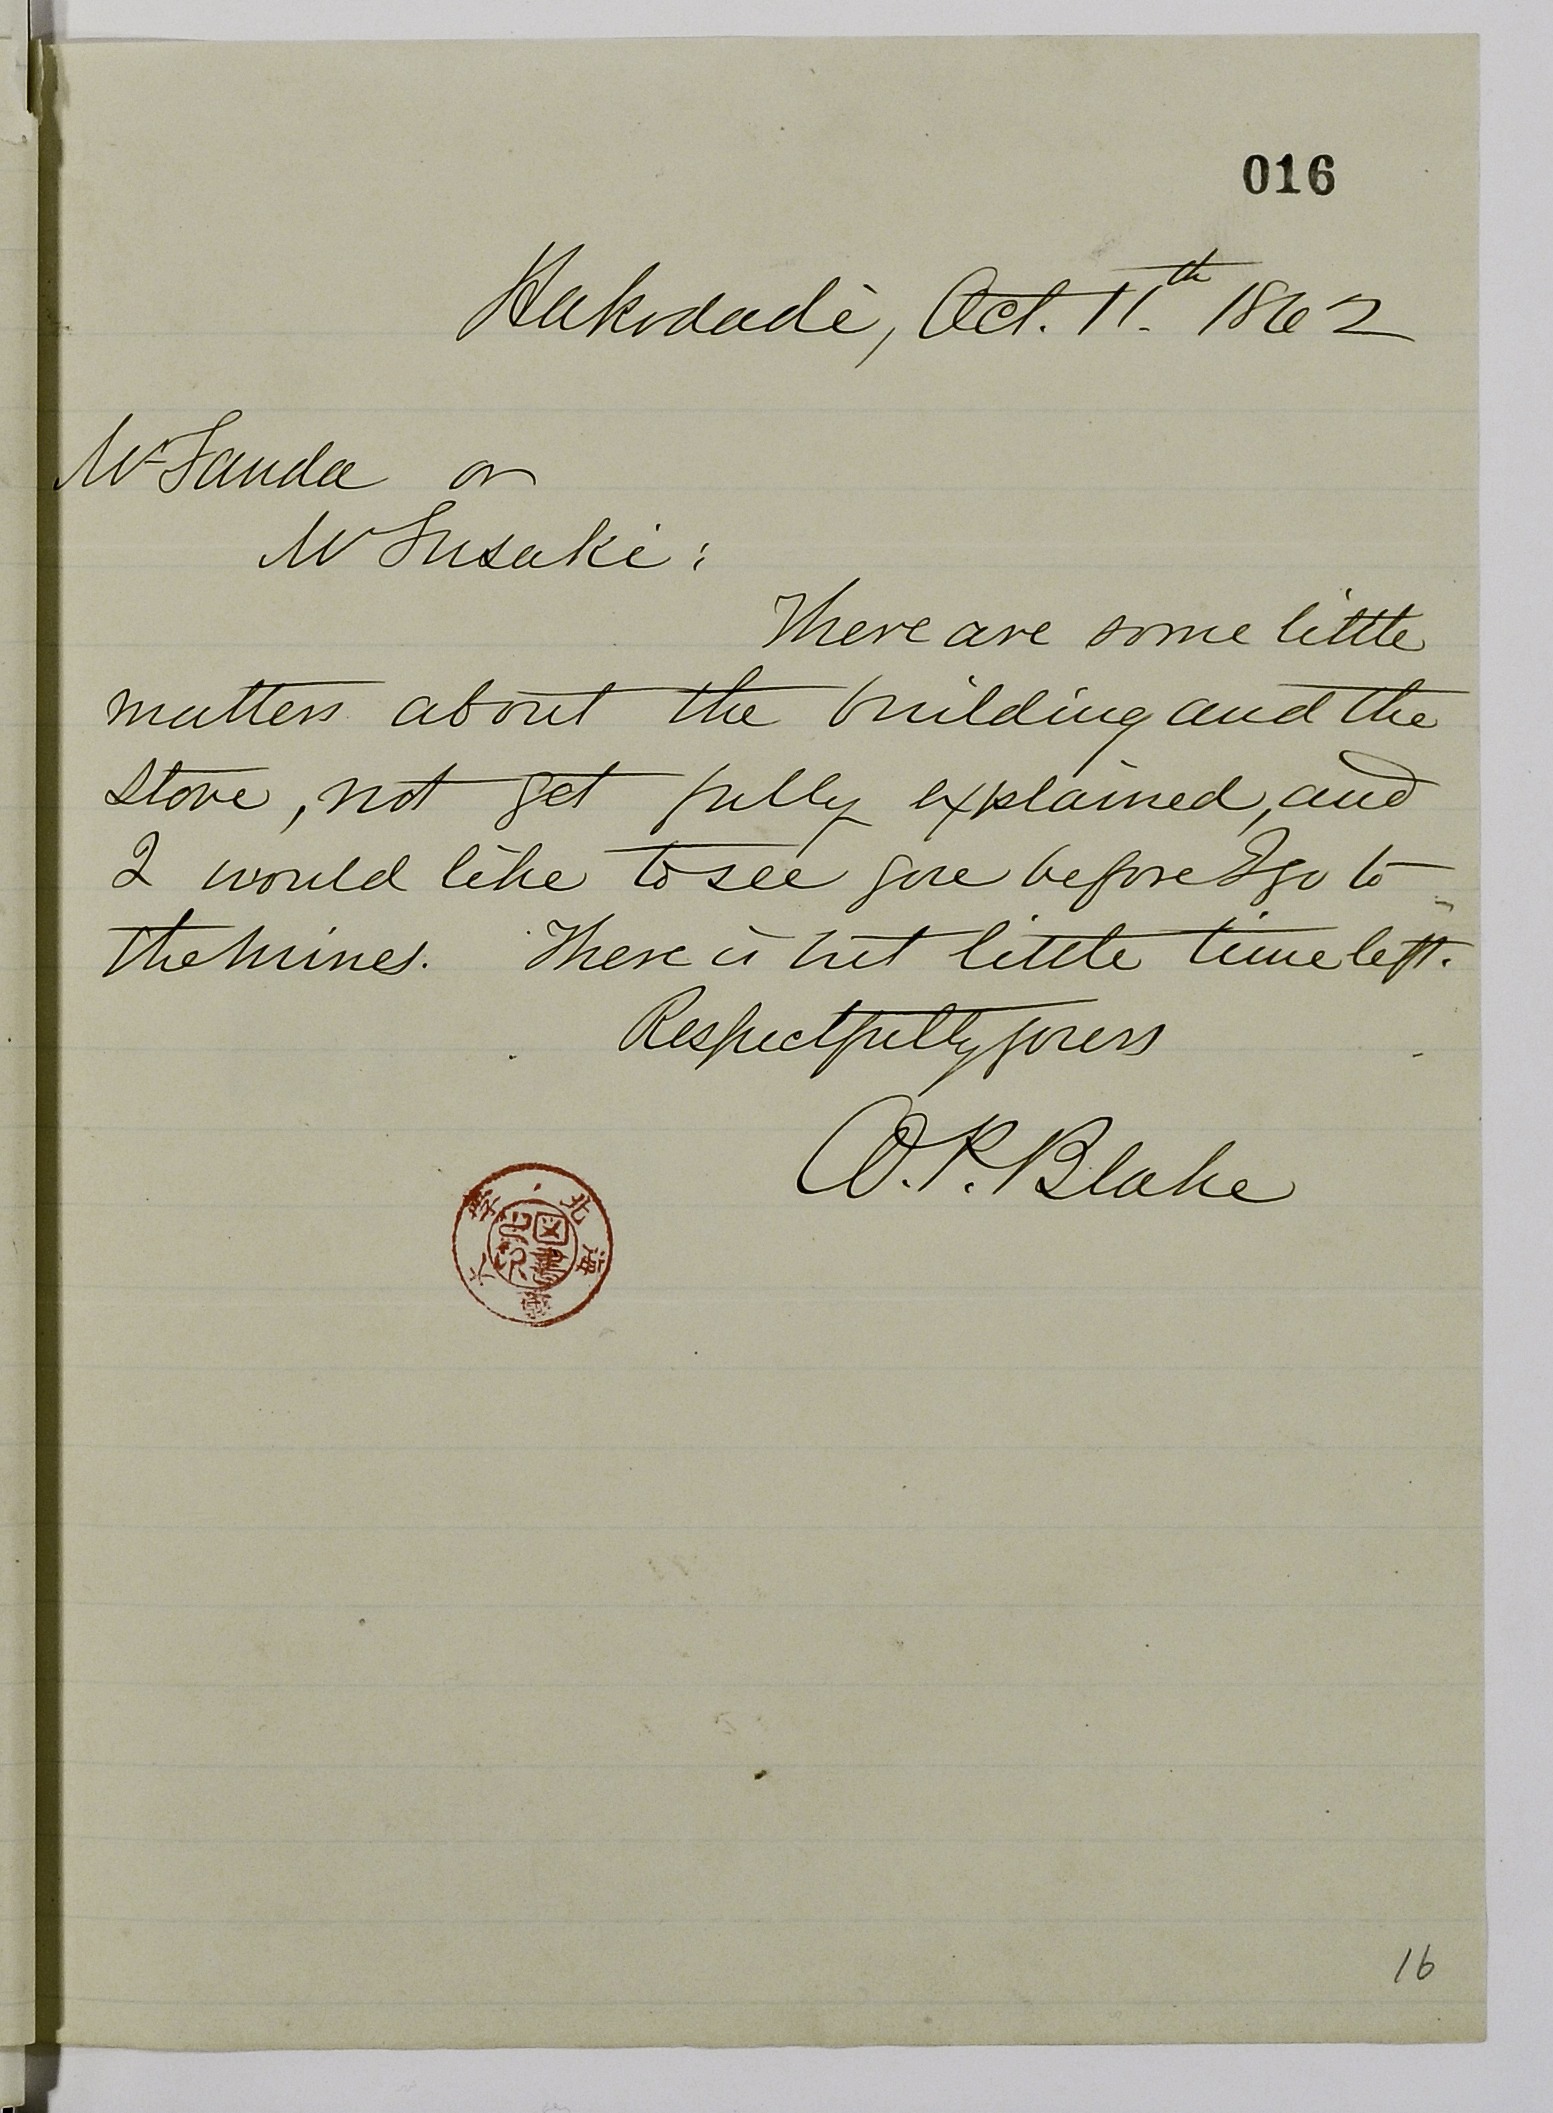 016
Hakodadi, Oct. 11.th 1862
Mr Sanda or
Mr Susaki:
There are some little
matters about the building and the
stove, not yet fully explained, and
I would like to see you before I go to
the mines. There is but little time left.
Respectfully yours
W. P. Blake
北海道大学
図書之印
16